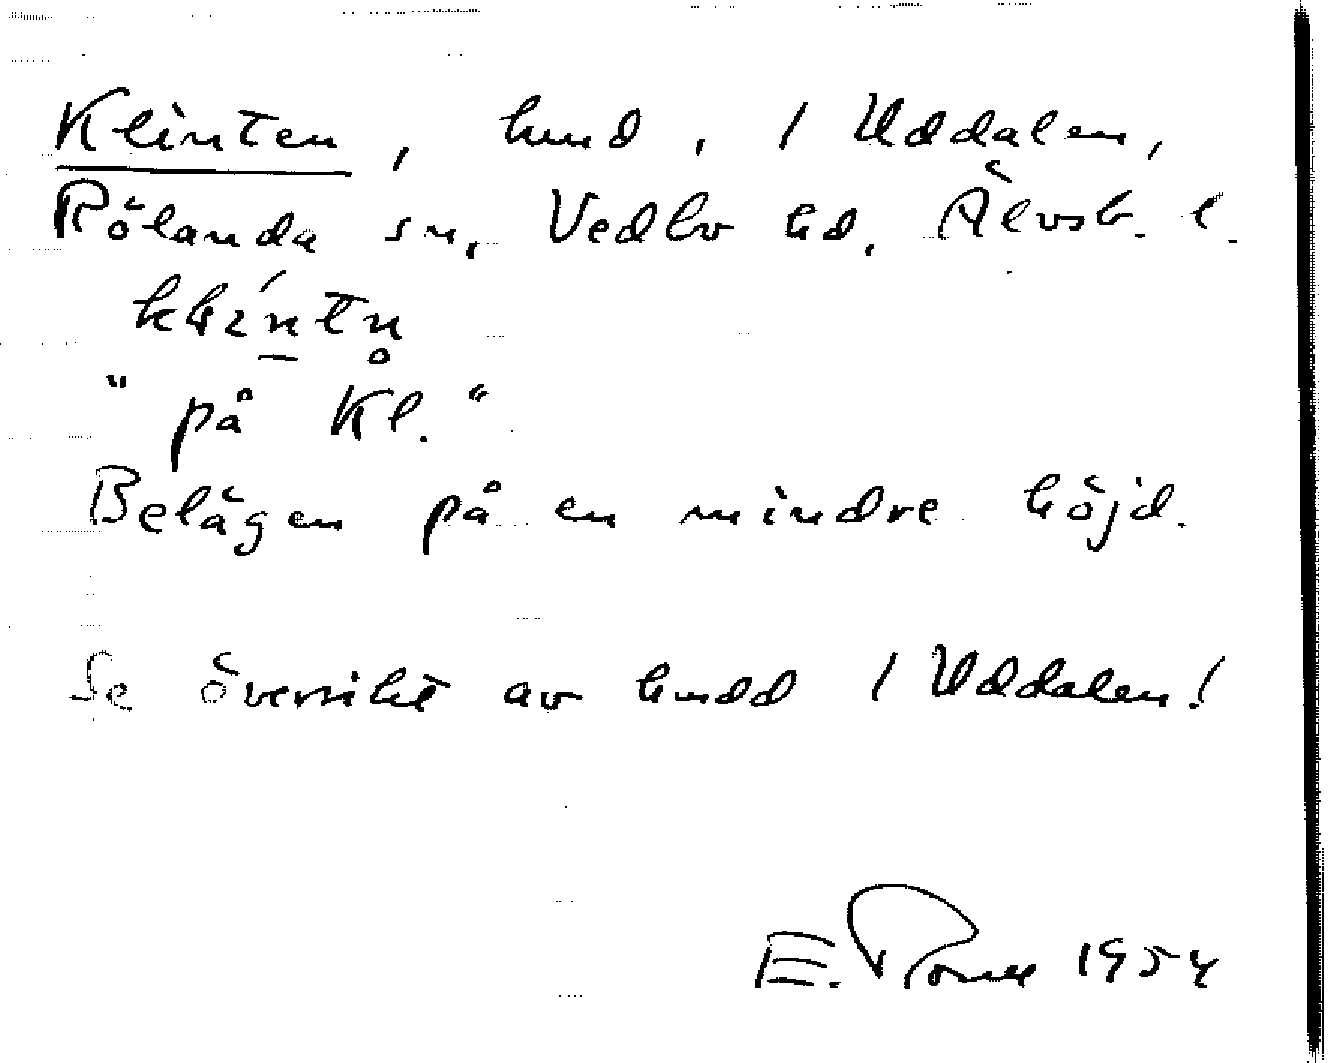 Klinten, hmd, 1 Uddalen,
Rölanda sn, Vedbo hd, Älvsb. l.
"på Kl."
Belägen på en mindre höjd.
Se översikt av hmdd 1 Uddalen!
E. 1954